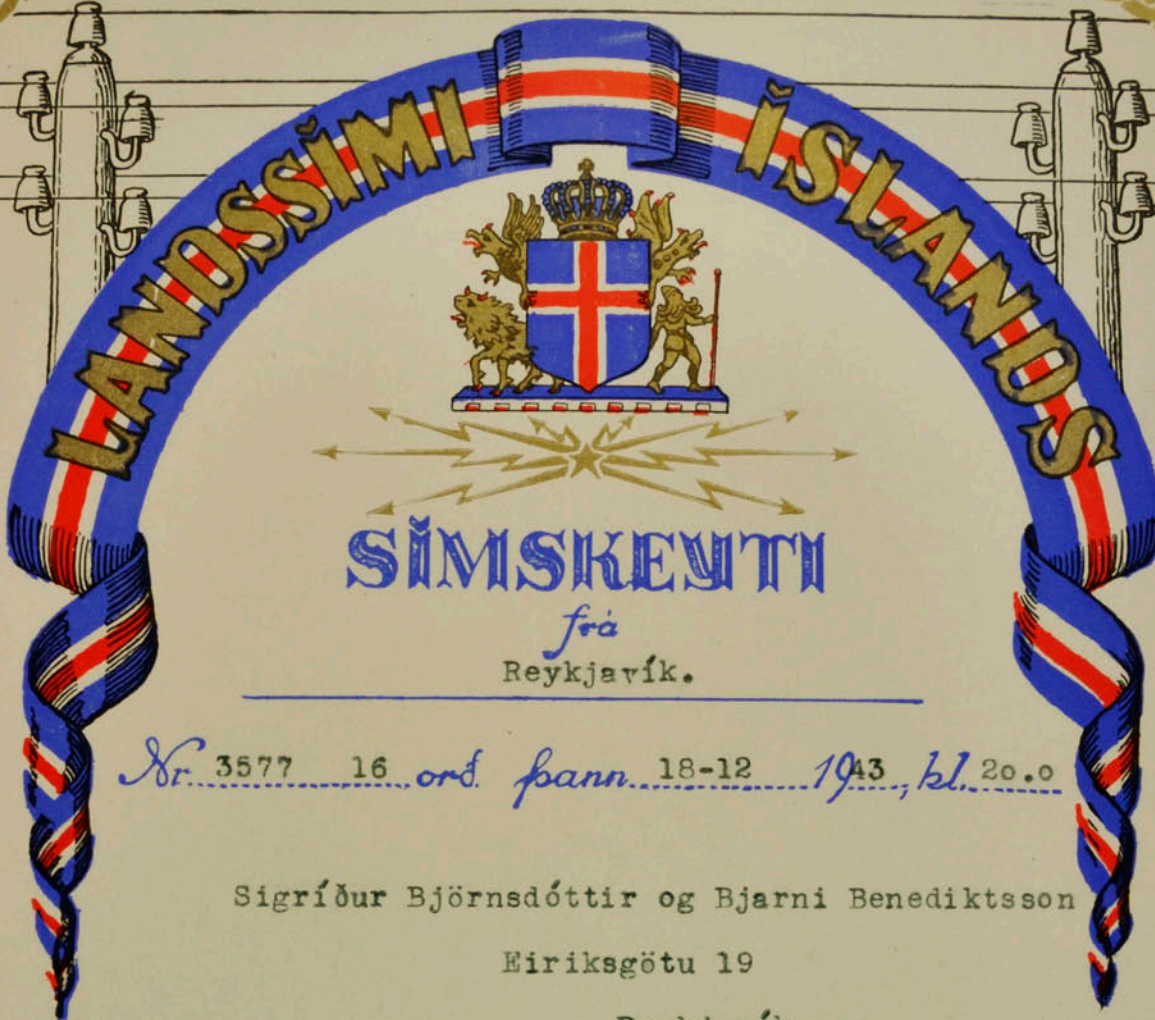 LANDSSÍMI ÍSLANDS
SÍMSKEYTI
frá
Reykjavík.
Nr. 3577 16 orð. þann 18-12 1943, kl. 20.0
Sigríður Björnsdóttir og Bjarni Benediktsson
Eiriksgötu 19